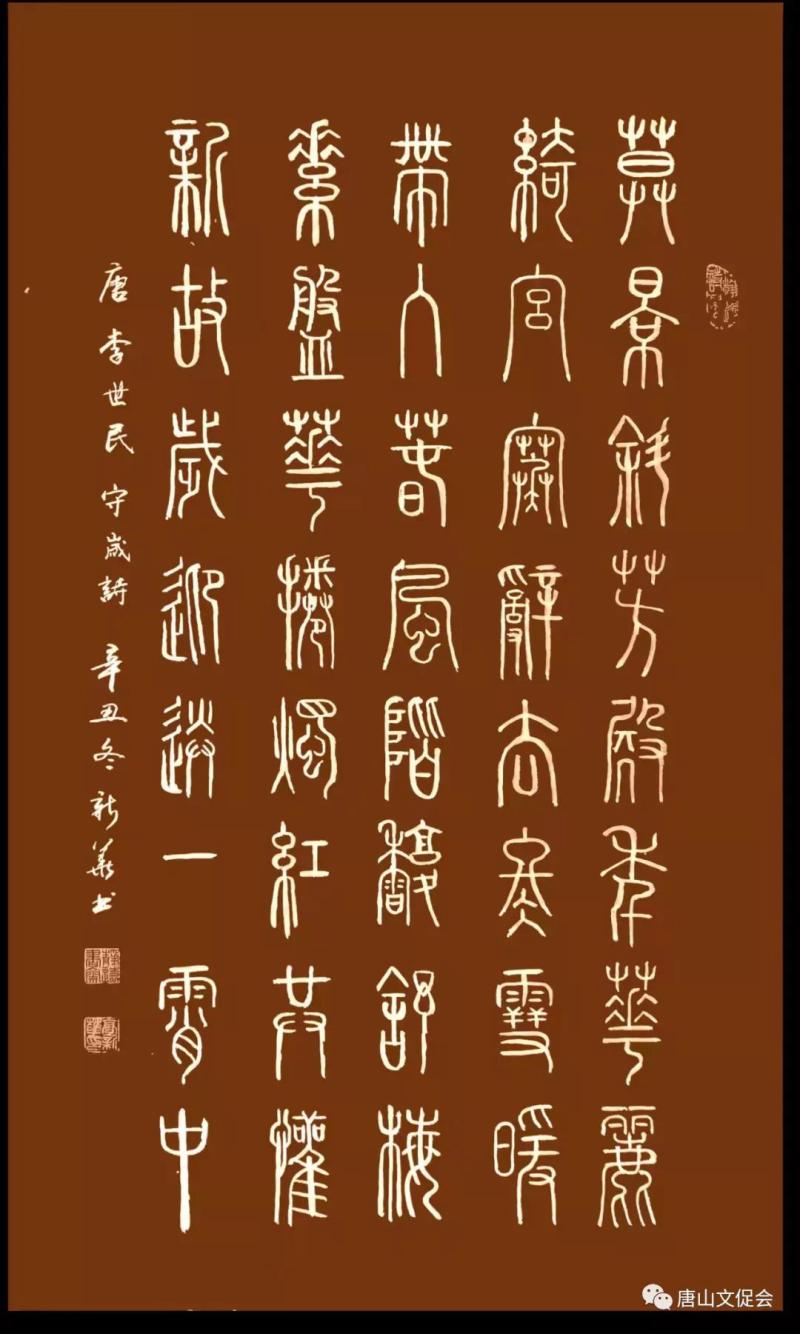 莫景斜芳殿年華麗
綺宮寒辭去冬雪暖
帶入春風階馥舒梅
素盤華捲燭紅共懽
新故歲迎送一霄中
唐 李世民 守歲詩 辛丑冬 新華书
唐山文促会